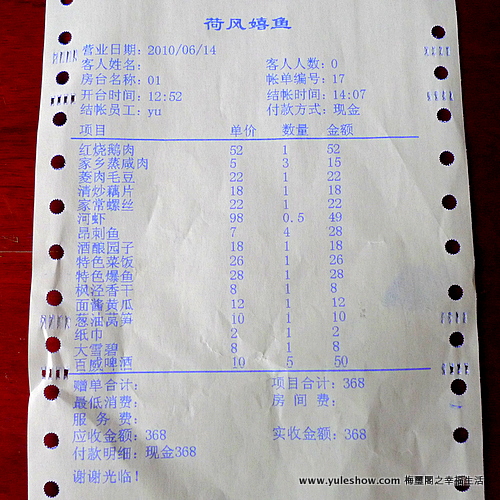 荷风嬉鱼
营业日期: 2010/06/14
客人姓名: 客人人数: 0
房台名称: 01 帐单编号: 17
开台时间: 12:52 结帐时间: 14:07
结帐员工: yu 付款方式: 现金
项目 单价 数量 金额
红烧鹅肉 52 1 52
家乡蒸咸肉 5 3 15
菱肉毛豆 22 1 22
清炒藕片 18 1 18
家常螺丝 22 1 22
河虾 98 0.5 49
昂刺鱼 7 4 28
酒酿园子 18 1 18
特色菜饭 26 1 26
特色爆鱼 28 1 28
枫泾香干 8 1 8
面酱黄瓜 12 1 12
葱油莴笋 10 1 10
纸巾 2 1 2
大雪碧 8 1 8
百威啤酒 10 5 50
赠单合计: 项目合计: 368
最低消费: 房间费:
服务费:
应收金额: 368 实收金额: 368
付款明细: 现金368
谢谢光临!
www.yuleshow.com 梅璽閣之幸福生活